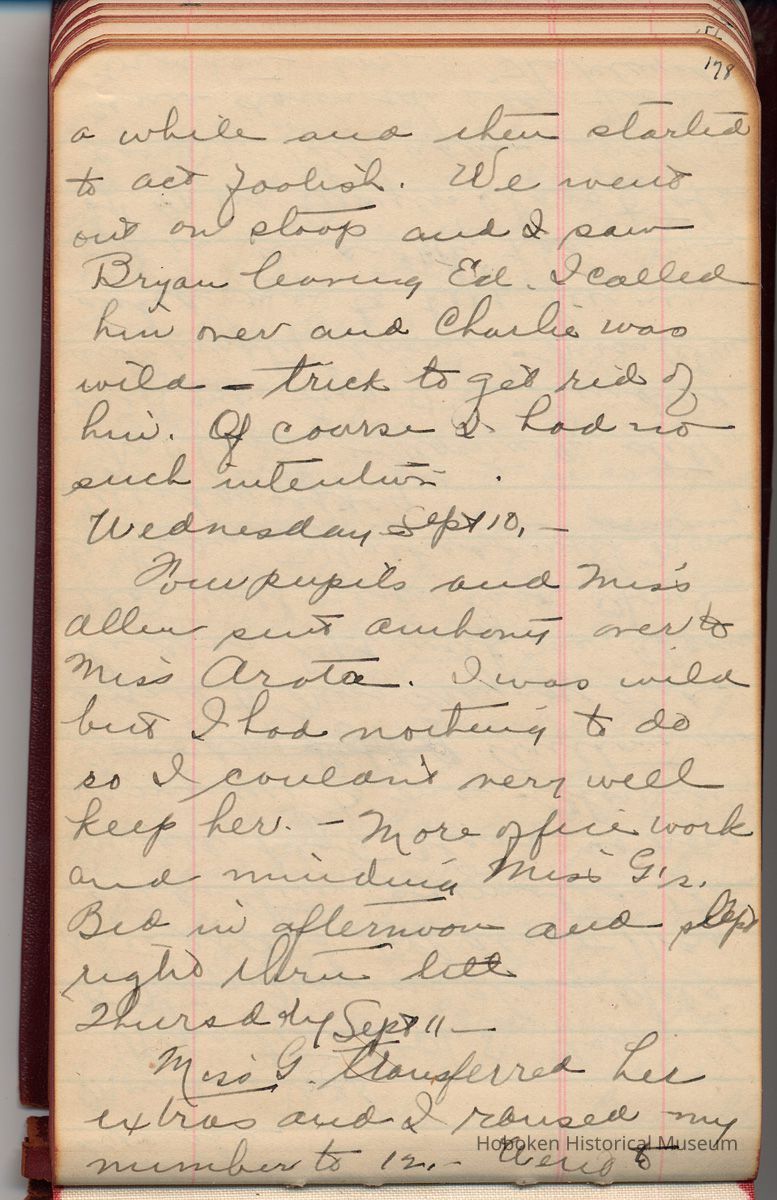 178
a while and then started
to act foolish. We went
out on stoop and I saw
Bryan leaving Ed. I called
him over and Charlie was
wild - trick to get rid of
him. Of course I had no
such intention.
Wednesday Sept 10, -
Four pupils and Miss
Allen sent Anthony over to
Miss Arata. I was wild
but I had nothing to do
so I couldn't very well
keep her. - More office work
and minding Miss G's.
Bed in afternoon and slept
right thru till
Thursday Sept 11 -
Miss G. transferred her
extras and I raised my
number to 12. - Went to
Hoboken Historical Museum